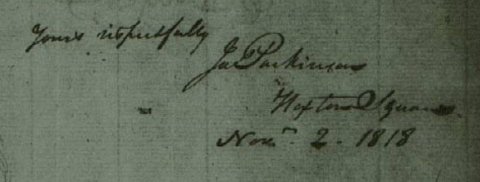 Yours respectfully
Ja Parkinson
Hoxton Square
Novr 2. 1818